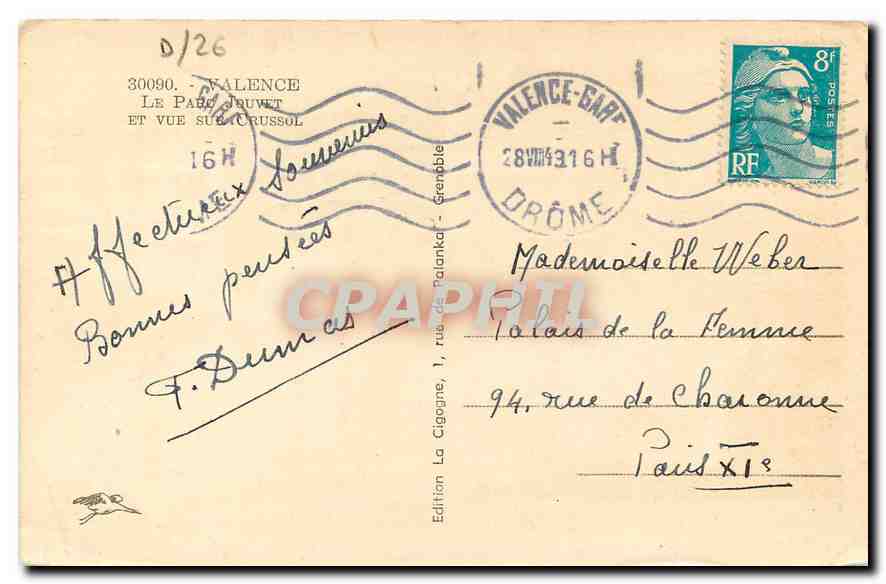 D/26
30090. - VALENCE
LE PARC JOUVET
ET VUE SUR CRUSSOL
16H
Affectueux Souvenirs
Bonnes pensées
F. Dumas
Edition La Cigogne, 1, rue de Palanka - Grenoble
VALENCE-GARE
28 VIII 4 16H
DRÔME
8F
POSTES
RF
Mademoiselle Weber
Palais de la Femme
94, rue de Charonne
Paris XIe
CPAPHIL